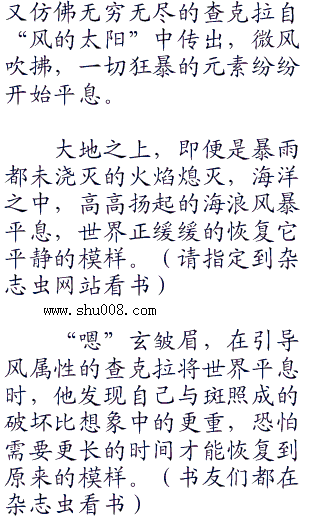 又仿佛无穷无尽的查克拉自
“风的太阳”中传出，微风
吹拂，一切狂暴的元素纷纷
开始平息。
大地之上，即便是暴雨
都未浇灭的火焰熄灭，海洋
之中，高高扬起的海浪风暴
平息，世界正缓缓的恢复它
平静的模样。（请指定到杂
志虫网站看书）
www.shu008.com
“嗯”玄皱眉，在引导
风属性的查克拉将世界平息
时，他发现自己与斑照成的
破坏比想象中的更重，恐怕
需要更长的时间才能恢复到
原来的模样。（书友们都在
杂志虫看书）